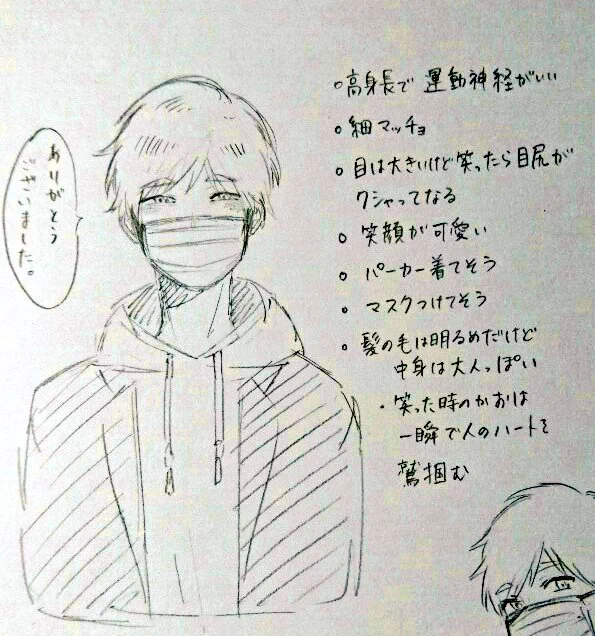 ありがとう
ございました。
高身長で 運動神経がいい
細マッチョ
目は大きいけど笑ったら目尻が
クシャってなる
笑顔が可愛い
パーカー着てそう
マスクつけてそう
髪の毛は明るめだけど
中身は大人っぽい
・笑った時のかおは
一瞬で人のハートを
鷲掴む